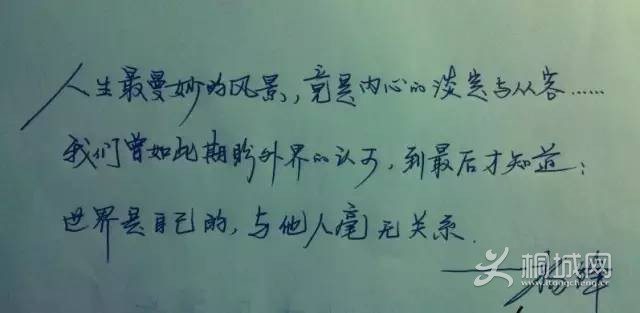 人生最曼妙的风景，竟是内心的淡定与从容……
我们曾如此期盼外界的认可，到最后才知道：
世界是自己的，与他人毫无关系.
——杨绛
桐城网
www.itongcheng.cc